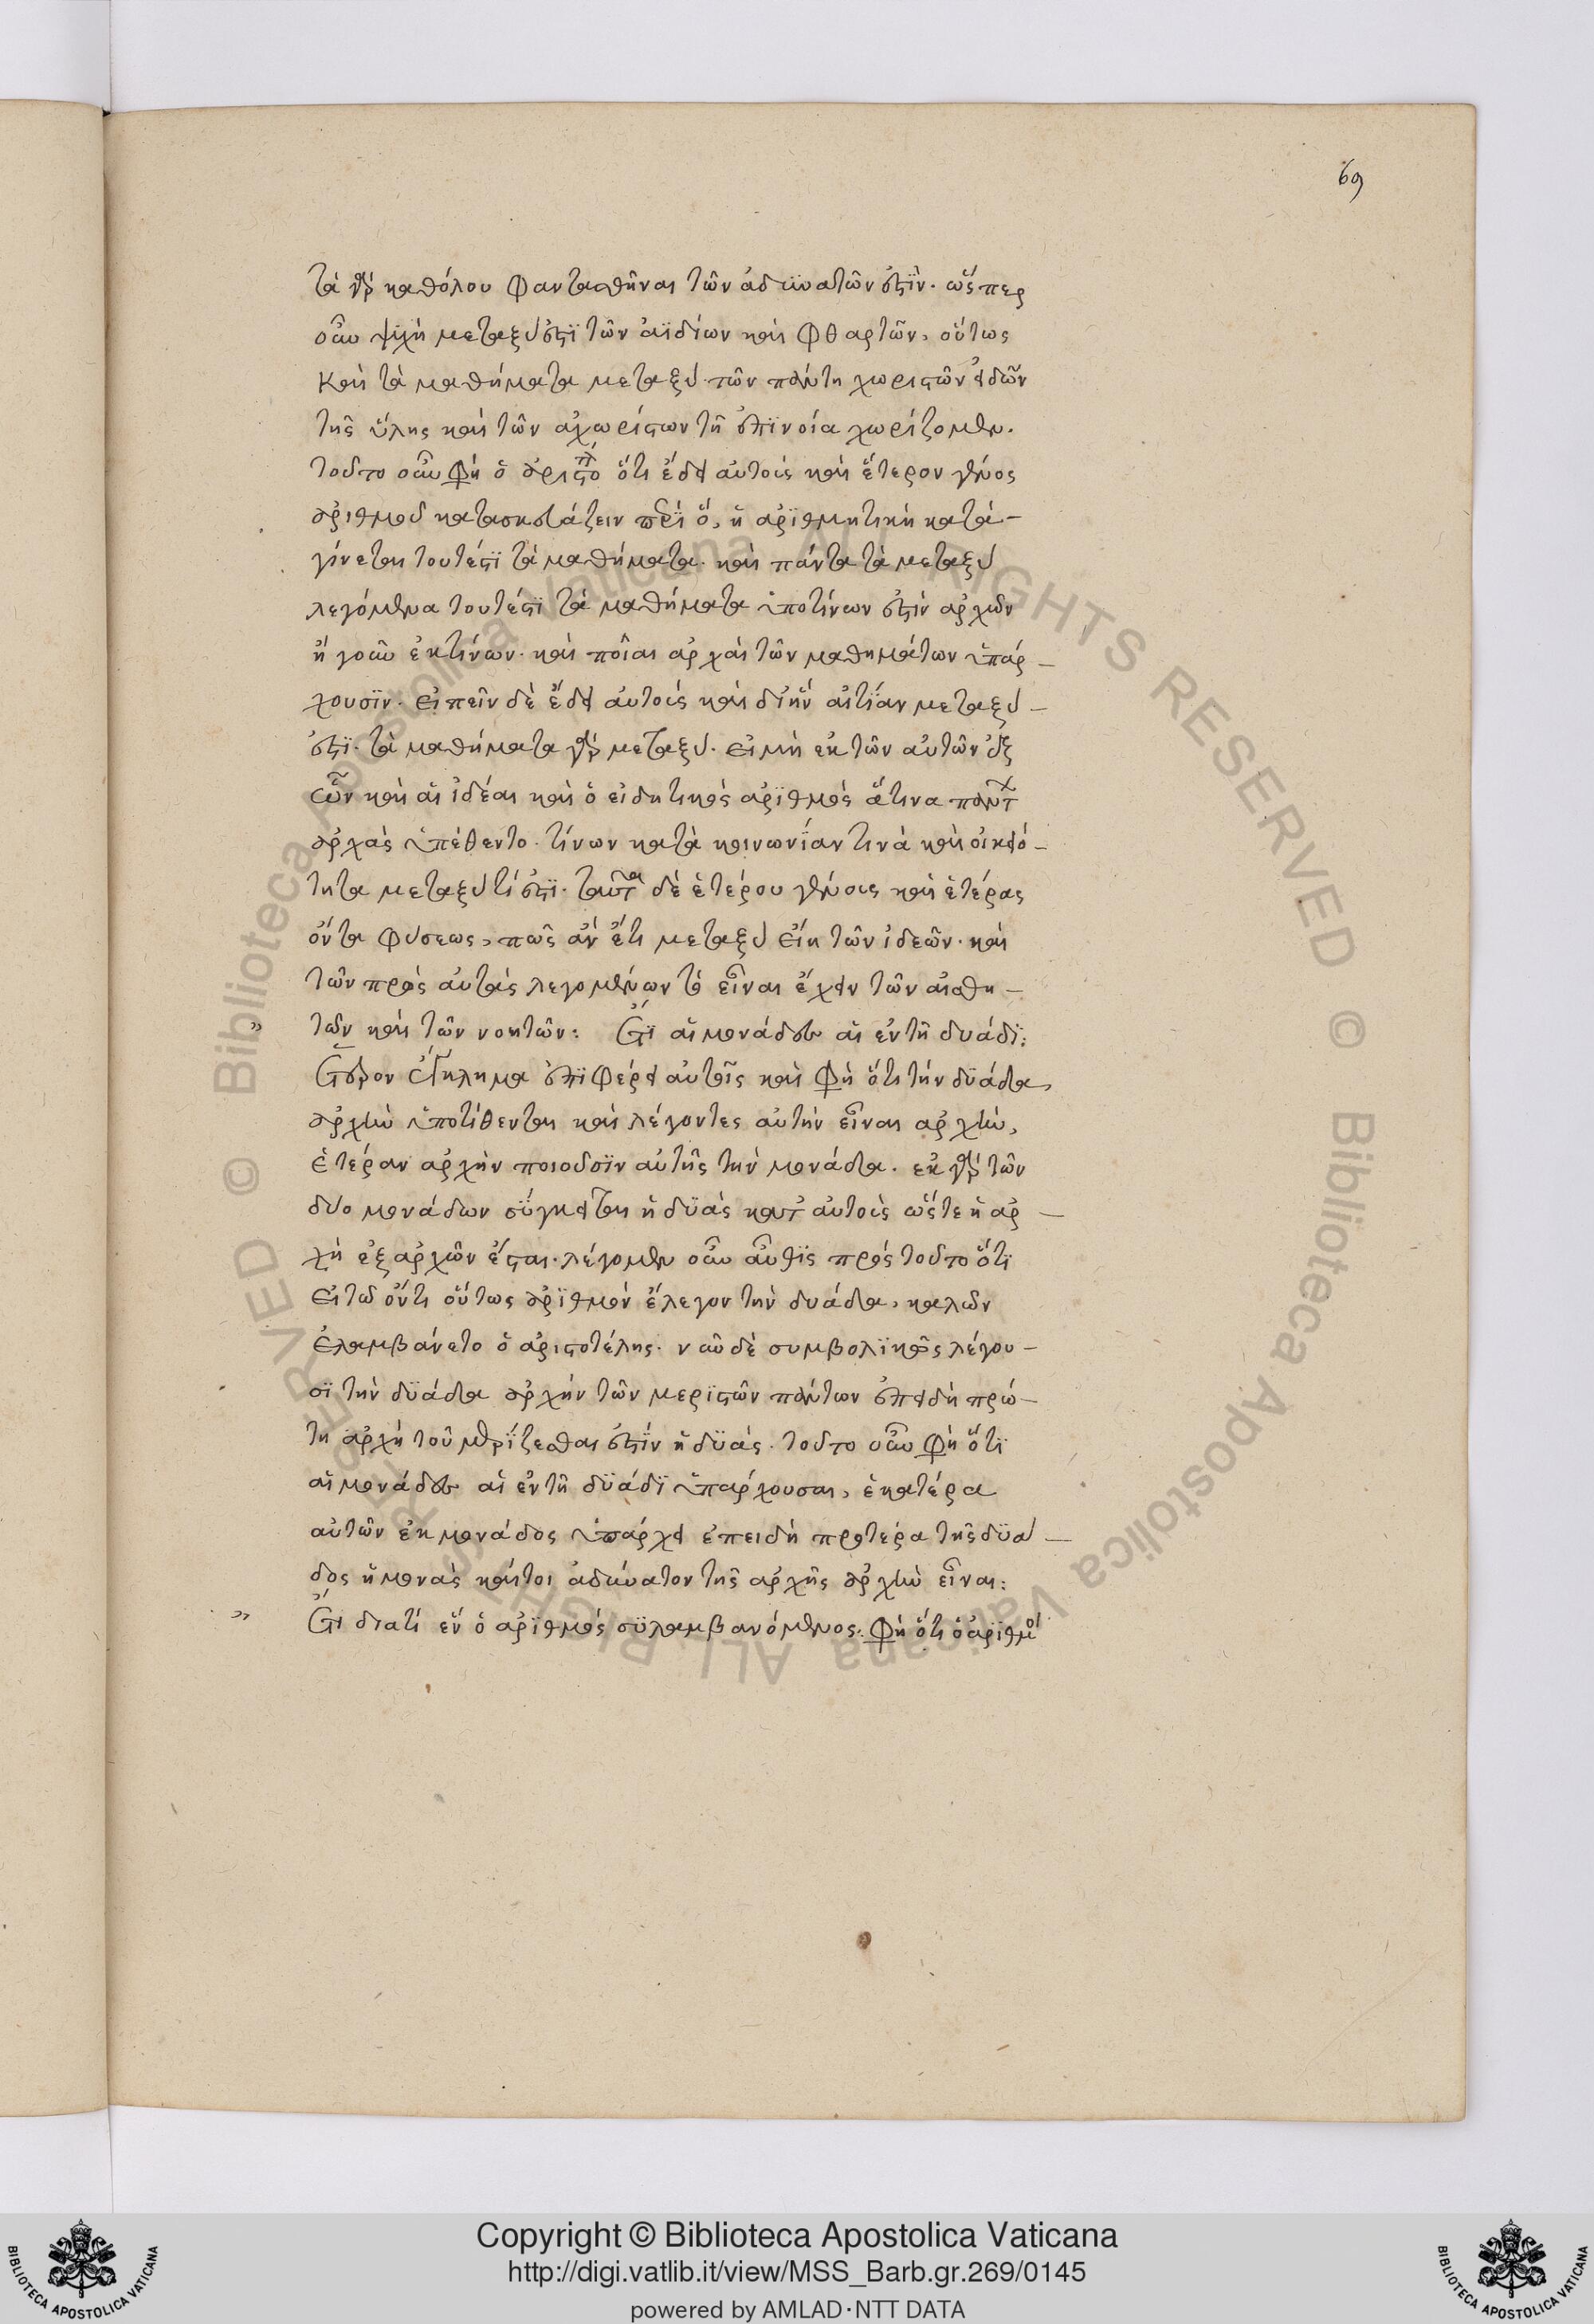 69
τὰ γὰρ καθόλου φαντασθῆναι τῶν ἀδυνάτων ἐστὶν. ὥσπερ
οὖν ψυχὴ μεταξύ ἐστι τῶν ἀϊδίων καὶ φθαρτῶν, οὕτως
καὶ τὰ μαθήματα μεταξὺ τῶν πάντη χωριστῶν εἰδῶν
τῆς ὕλης καὶ τῶν ἀχωρίστων τῆ ἐπινοία χωρίζομεν.
τοῦτο οὖν φησὶ ὁ ἀριστοτέλης ὅτι ἔδει αὐτοῖς καὶ ἕτερον γένος
ἀριθμοῦ κατασκευάζειν περὶ ὅ, ἡ ἀριθμητικὴ κατα-
γίνεται τουτέστι τὰ μαθήματα. καὶ πάντα τὰ μεταξὺ
λεγόμενα τουτέστι τὰ μαθήματα ἀπὸ τίνων ἐστὶν ἀρχῶν
ἤγουν ἐκ τίνων. καὶ ποῖαι ἀρχαὶ τῶν μαθημάτων ὑπάρ-
χουσιν. εἰπεῖν δὲ ἔδει αὐτοῖς καὶ δι' ἣν αἰτίαν μεταξύ
ἐστι. τὰ μαθήματα γὰρ μεταξὺ. εἰ μὴ ἐκ τῶν αὐτῶν ἐξ
ὧν καὶ αἱ ἰδέαι καὶ ὁ εἰδητικὸς ἀριθμὸς ἅτινα πάντων
ἀρχὰς ὑπέθεντο. τίνων κατὰ κοινωνίαν τινὰ καὶ οἰκειό-
τητα μεταξύ τί ἐστι. ταῦτα δὲ ἑτέρου γένους καὶ ἑτέρας
ὄντα φύσεως, πῶς ἂν ἔτι μεταξὺ εἴη τῶν ἰδεῶν. καὶ
τῶν πρὸς αὐτὰς λεγομένων τὸ εἶναι ἔχειν τῶν αἰσθη-
" τῶν καὶ τῶν νοητῶν: Ἔτι αἱ μονάδες αἱ ἐν τῆ δυάδι:
Ἕτερον ἔγκλημα ἐπιφέρει αὐτοῖς καὶ φησὶ ὅτι τὴν δυάδα,
ἀρχὴν ὑποτίθενται καὶ λέγοντες αὐτὴν εἶναι ἀρχὴν,
ἑτέραν ἀρχὴν ποιοῦσιν αὐτῆς τὴν μονάδα. ἐκ γὰρ τῶν
δύο μονάδων σύγκειται ἡ δυὰς κατ' αὐτοὺς ὥστε ἡ ἀρ-
χὴ ἐξ ἀρχῶν ἔσται. λέγομεν οὖν αὖθις πρὸς τοῦτο ὅτι
εἰ τῶ ὄντι οὕτως ἀριθμὸν ἔλεγον τὴν δυάδα, καλῶς
ἐλαμβάνετο ὁ ἀριστοτέλης. νῦν δὲ συμβολικῶς λέγου-
σι τὴν δυάδα ἀρχὴν τῶν μεριστῶν πάντων ἐπειδὴ πρώ-
τη ἀρχὴ τοῦ μερίζεσθαι ἐστὶν ἡ δυάς. τοῦτο οὖν φησὶ ὅτι
αἱ μονάδες αἱ ἐν τῆ δυάδι ὑπάρχουσαι, ἑκατέρα
αὐτῶν ἐκ μονάδος ὑπάρχει ἐπειδὴ προτέρα τῆς δυά-
δος ἡ μονὰς καίτοι ἀδύνατον τῆς ἀρχῆς ἀρχὴν εἶναι:
" Ἔτι διατί ἓν ὁ ἀριθμὸς συλλαμβανόμενος. φησὶ ὅτι ὁ ἀριθμὸς
Copyright © Biblioteca Apostolica Vaticana
http://digi.vatlib.it/view/MSS_Barb.gr.269/0145
powered by AMLAD·NTT DATA